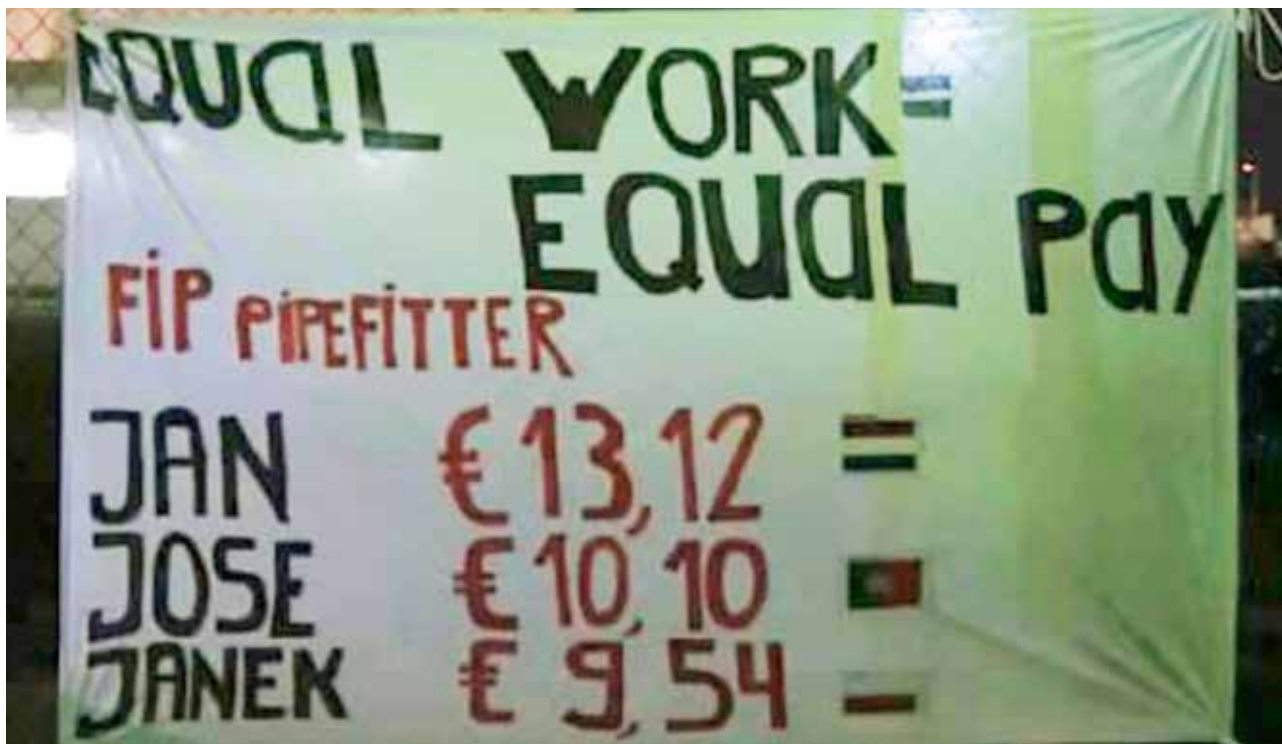 EQUAL WORK
EQUAL PAY
FIP PIPEFITTER
JAN €13,12
JOSE €10,10
JANEK €9,54